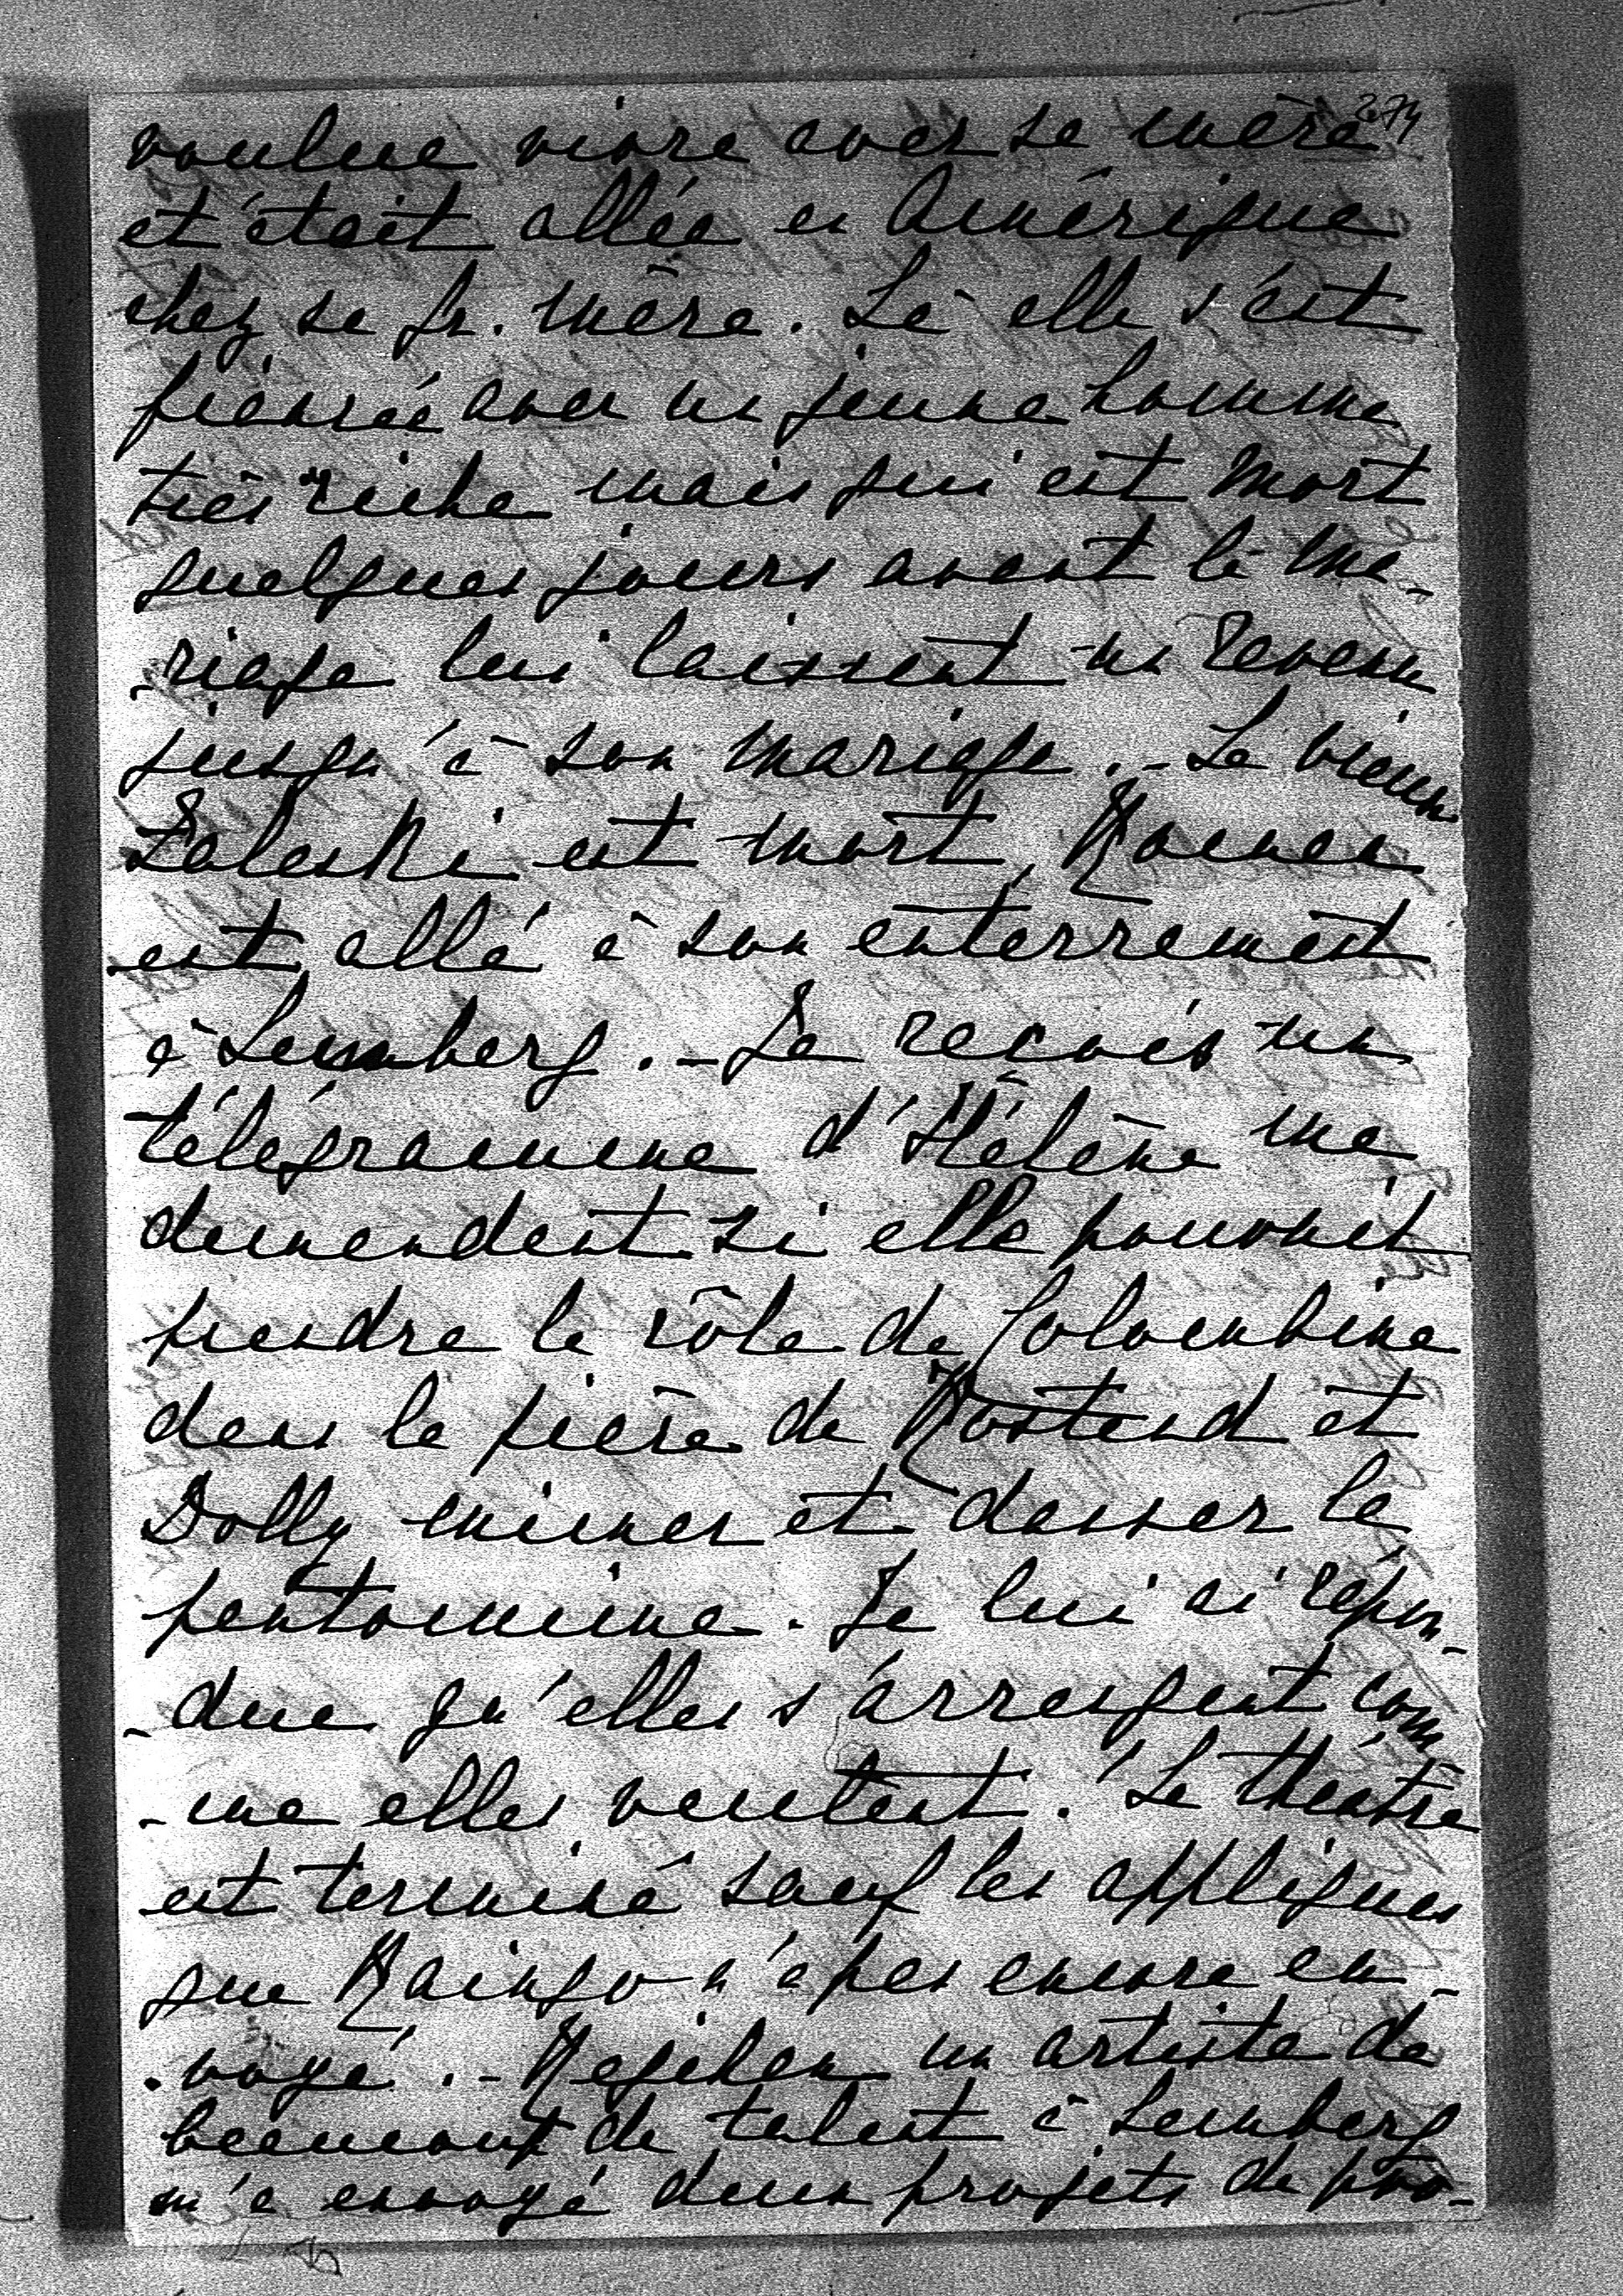 2074
voulue vivre avec sa mère
et était allée en Amérique
chez sa gr. mère. Là elle s'est
fiancée avec un jeune homme
très riche mais qui est mort
quelques jours avant le ma-
-riage lui laissant un revenu
jusqu'à son mariage. - Le vieux
Zaleski est mort, Roman
est allé à son enterrement
à Lemberg. - Je reçois un
télégramme d'Hélène me
demandant si elle pourrait
prendre le rôle de Colombine
dans la pièce de Rostand et
Dolly mimer et danser la
pantomime. Je lui ai répon-
-due qu'elles s'arrangent com-
-me elles veulent. Le théâtre
est terminé sauf les appliques
que Raingo n'a pas encore en-
-voyé. - un artiste de
beaucoup de talent à Lemberg
m'a envoyé deux projets de pro-